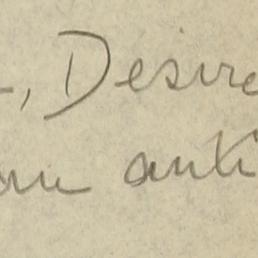 -, Desire
anti